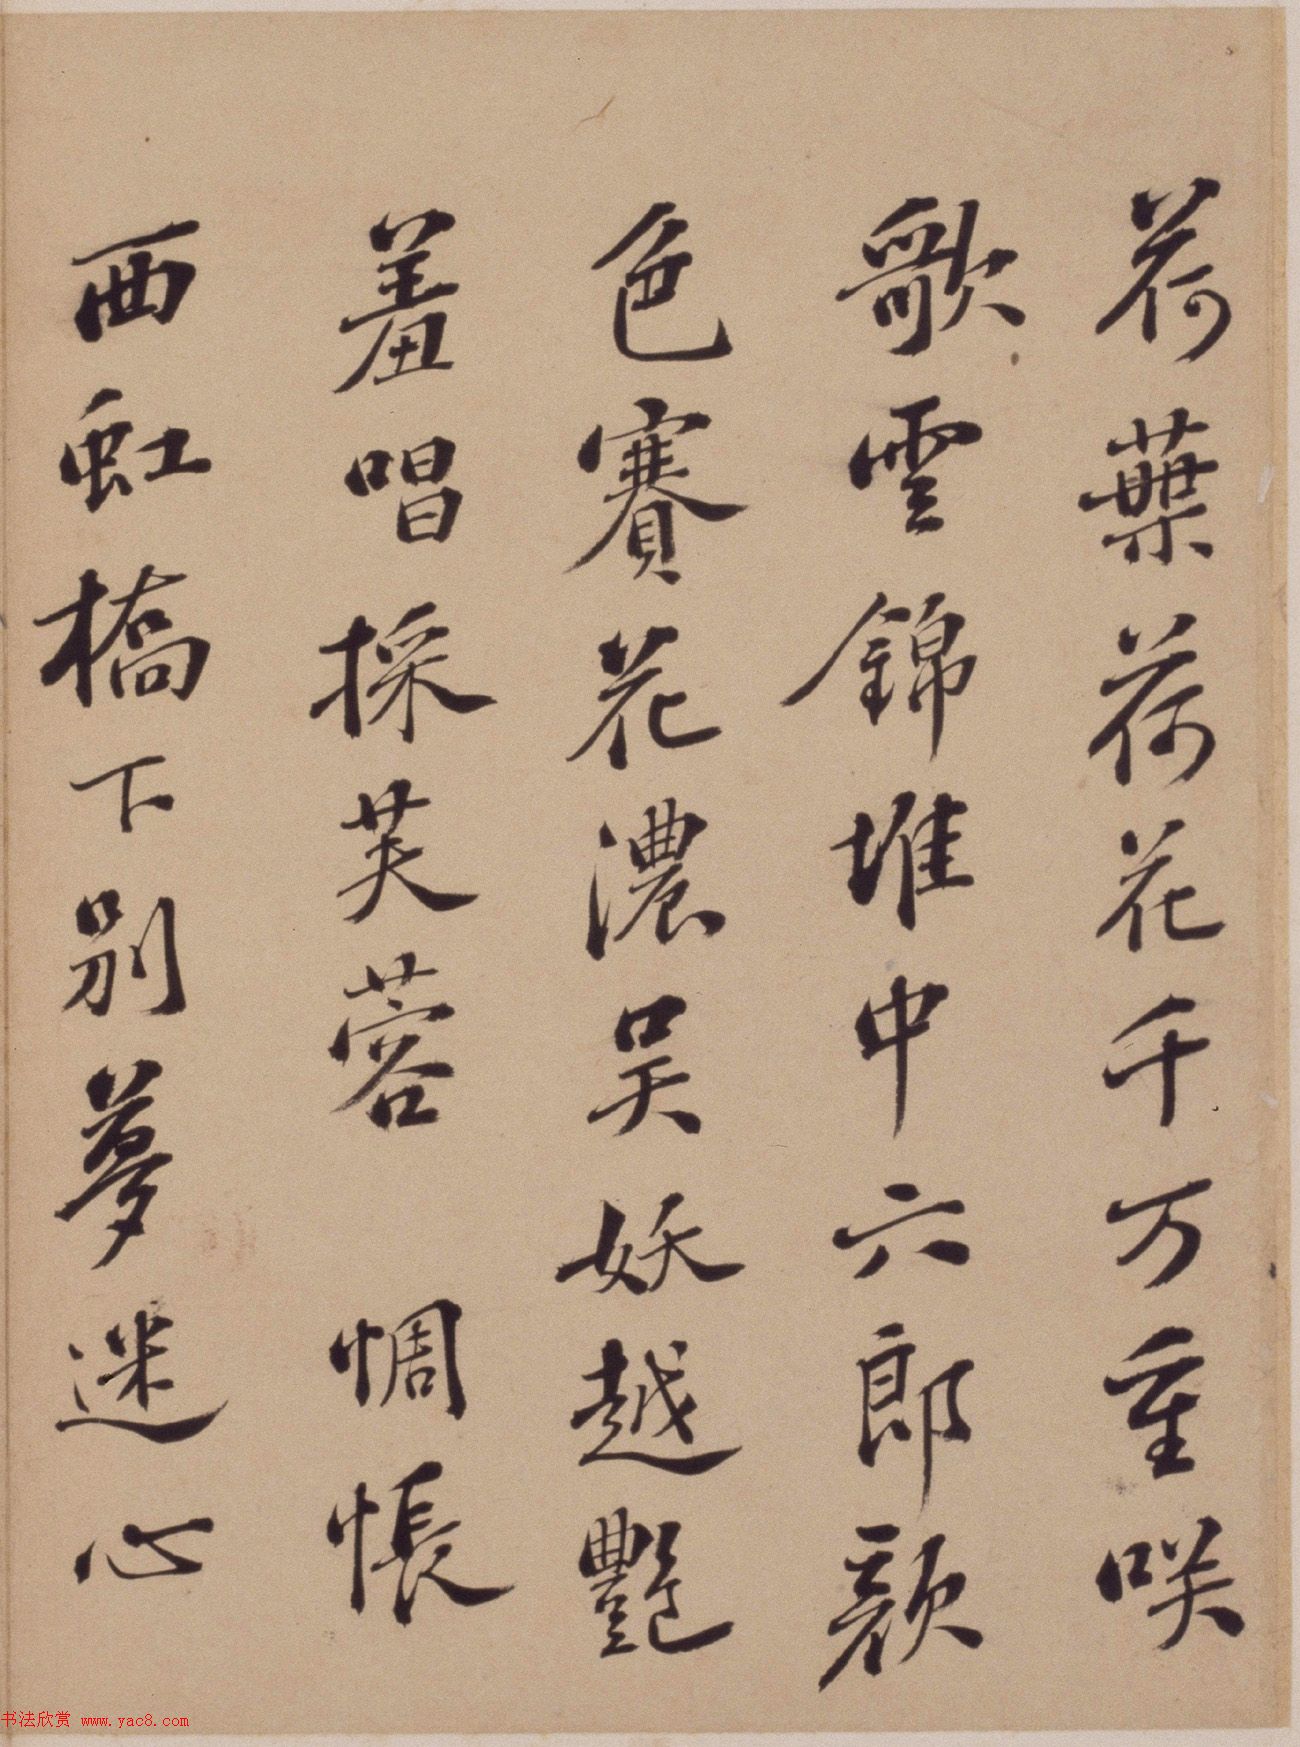 荷葉荷花千万重咲
歌雲錦堆中六郎顔
色賽花濃吴妖越艷
羞唱採芙蓉 惆悵
西虹橋下別夢迷心
书法欣赏 www.yac8.com